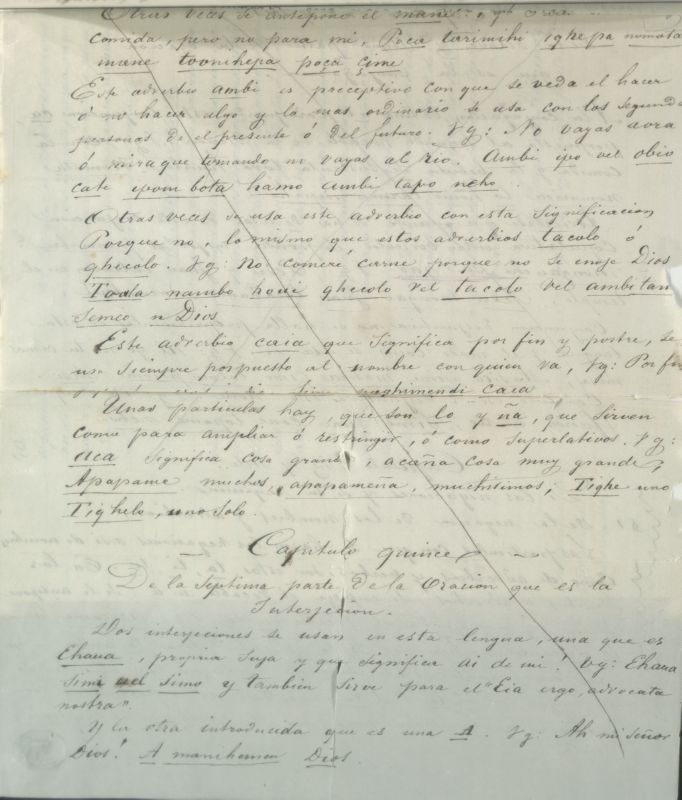 Otras veces se antepone el mane
comida, pero no para mi, Poca tarimihi ighe pa nomota
mane toonihepa poçà çime
Este adverbio ambi es preceptivo con que se veda el hacer
ó no hacer algo y lo mas ordinario se usa con las segund
personas de el presente ó del futuro. Vg: No vayas aora
ó mira que tomando no vayas al rio. Ambi ipo vel obio
cate ipom bota hamo ambi tapo neho.
Otras veces se usa este adverbio con esta significacion
Porque no, lo mismo que estos adverbios tacolo ó
ghecolo. Vg: No comeré carne porque no se enoje Dios
Toola nambo houi ghecolo vel tacolo vel ambitan
Semeo n Dios
Este adverbio caia que significa por fin y postre, se
usa siempre pospuesto al nombre con quien va, Vg: Por fin
caia
Unas particulas hay, que son lo y ña, que sirven
como para ampliar ó restringir, ó como superlativos. Vg:
aca significa cosa grande, acaña cosa muy grande,
Apapame muchos, apapameña, muchitimos; Tighe uno
Tighelo, uno solo.
Capitulo quince
De la septima parte de la Oracion que es la
Interjecion.
Dos interjeciones se usan en esta lengua, una que es
Ehaua, propria suya y que significa ai de mi! Vg: Ehaua
Simi uel Simo y tambien sirve para el "Eia ergo, advocata
nostra".
Y la otra introducida que es una A. Vg: Ah mi señor
Dios! A manihemen Dios.